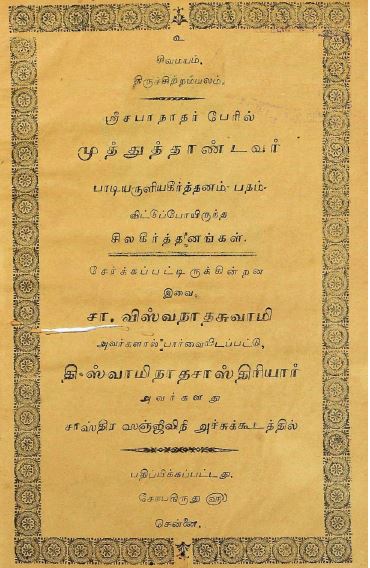 உ
சிவமயம்.
திருச்சிற்றம்பலம்.
ஸ்ரீசபாநாதர் பேரில்
முத்துத்தாண்டவர்
பாடியருளியகீர்த்தனம்- பதம்-
விட்டுப்போயிருந்த
சிலகீர்த்தனங்கள்.
சேர்க்கப்பட்டிருக்கின்றன
இவை,
சா. விஸ்வநாதசுவாமி
அவர்களால் பார்வையிடப்பட்டு,
கி-ஸ்வாமிநாதசாஸ்திரியார்
அவர்களது
சாஸ்திர ஸஞ்ஜீவிநீ அச்சுக்கூடத்தில்
பதிப்பிக்கப்பட்டது.
சோபகிருது ௵
சென்னை.